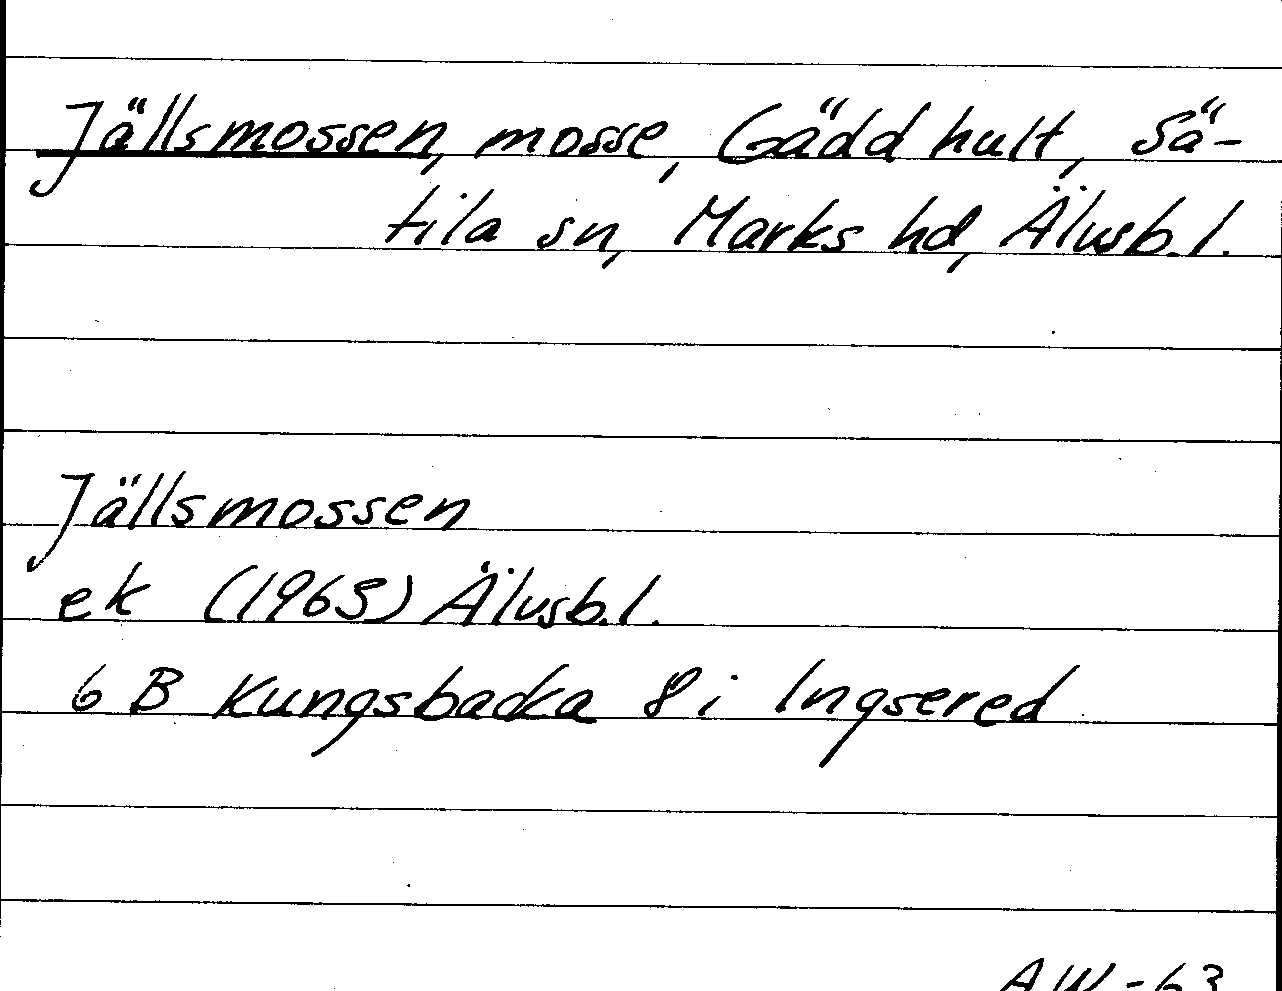 Jällsmossen, mosse, Gäddhult, Sä-
tila sn, Marks hd, Älvsb. l.
Jällsmossen
ek (1965) Älvsb. l.
6 B Kungsbacka 8 i Ingsered
AW -63